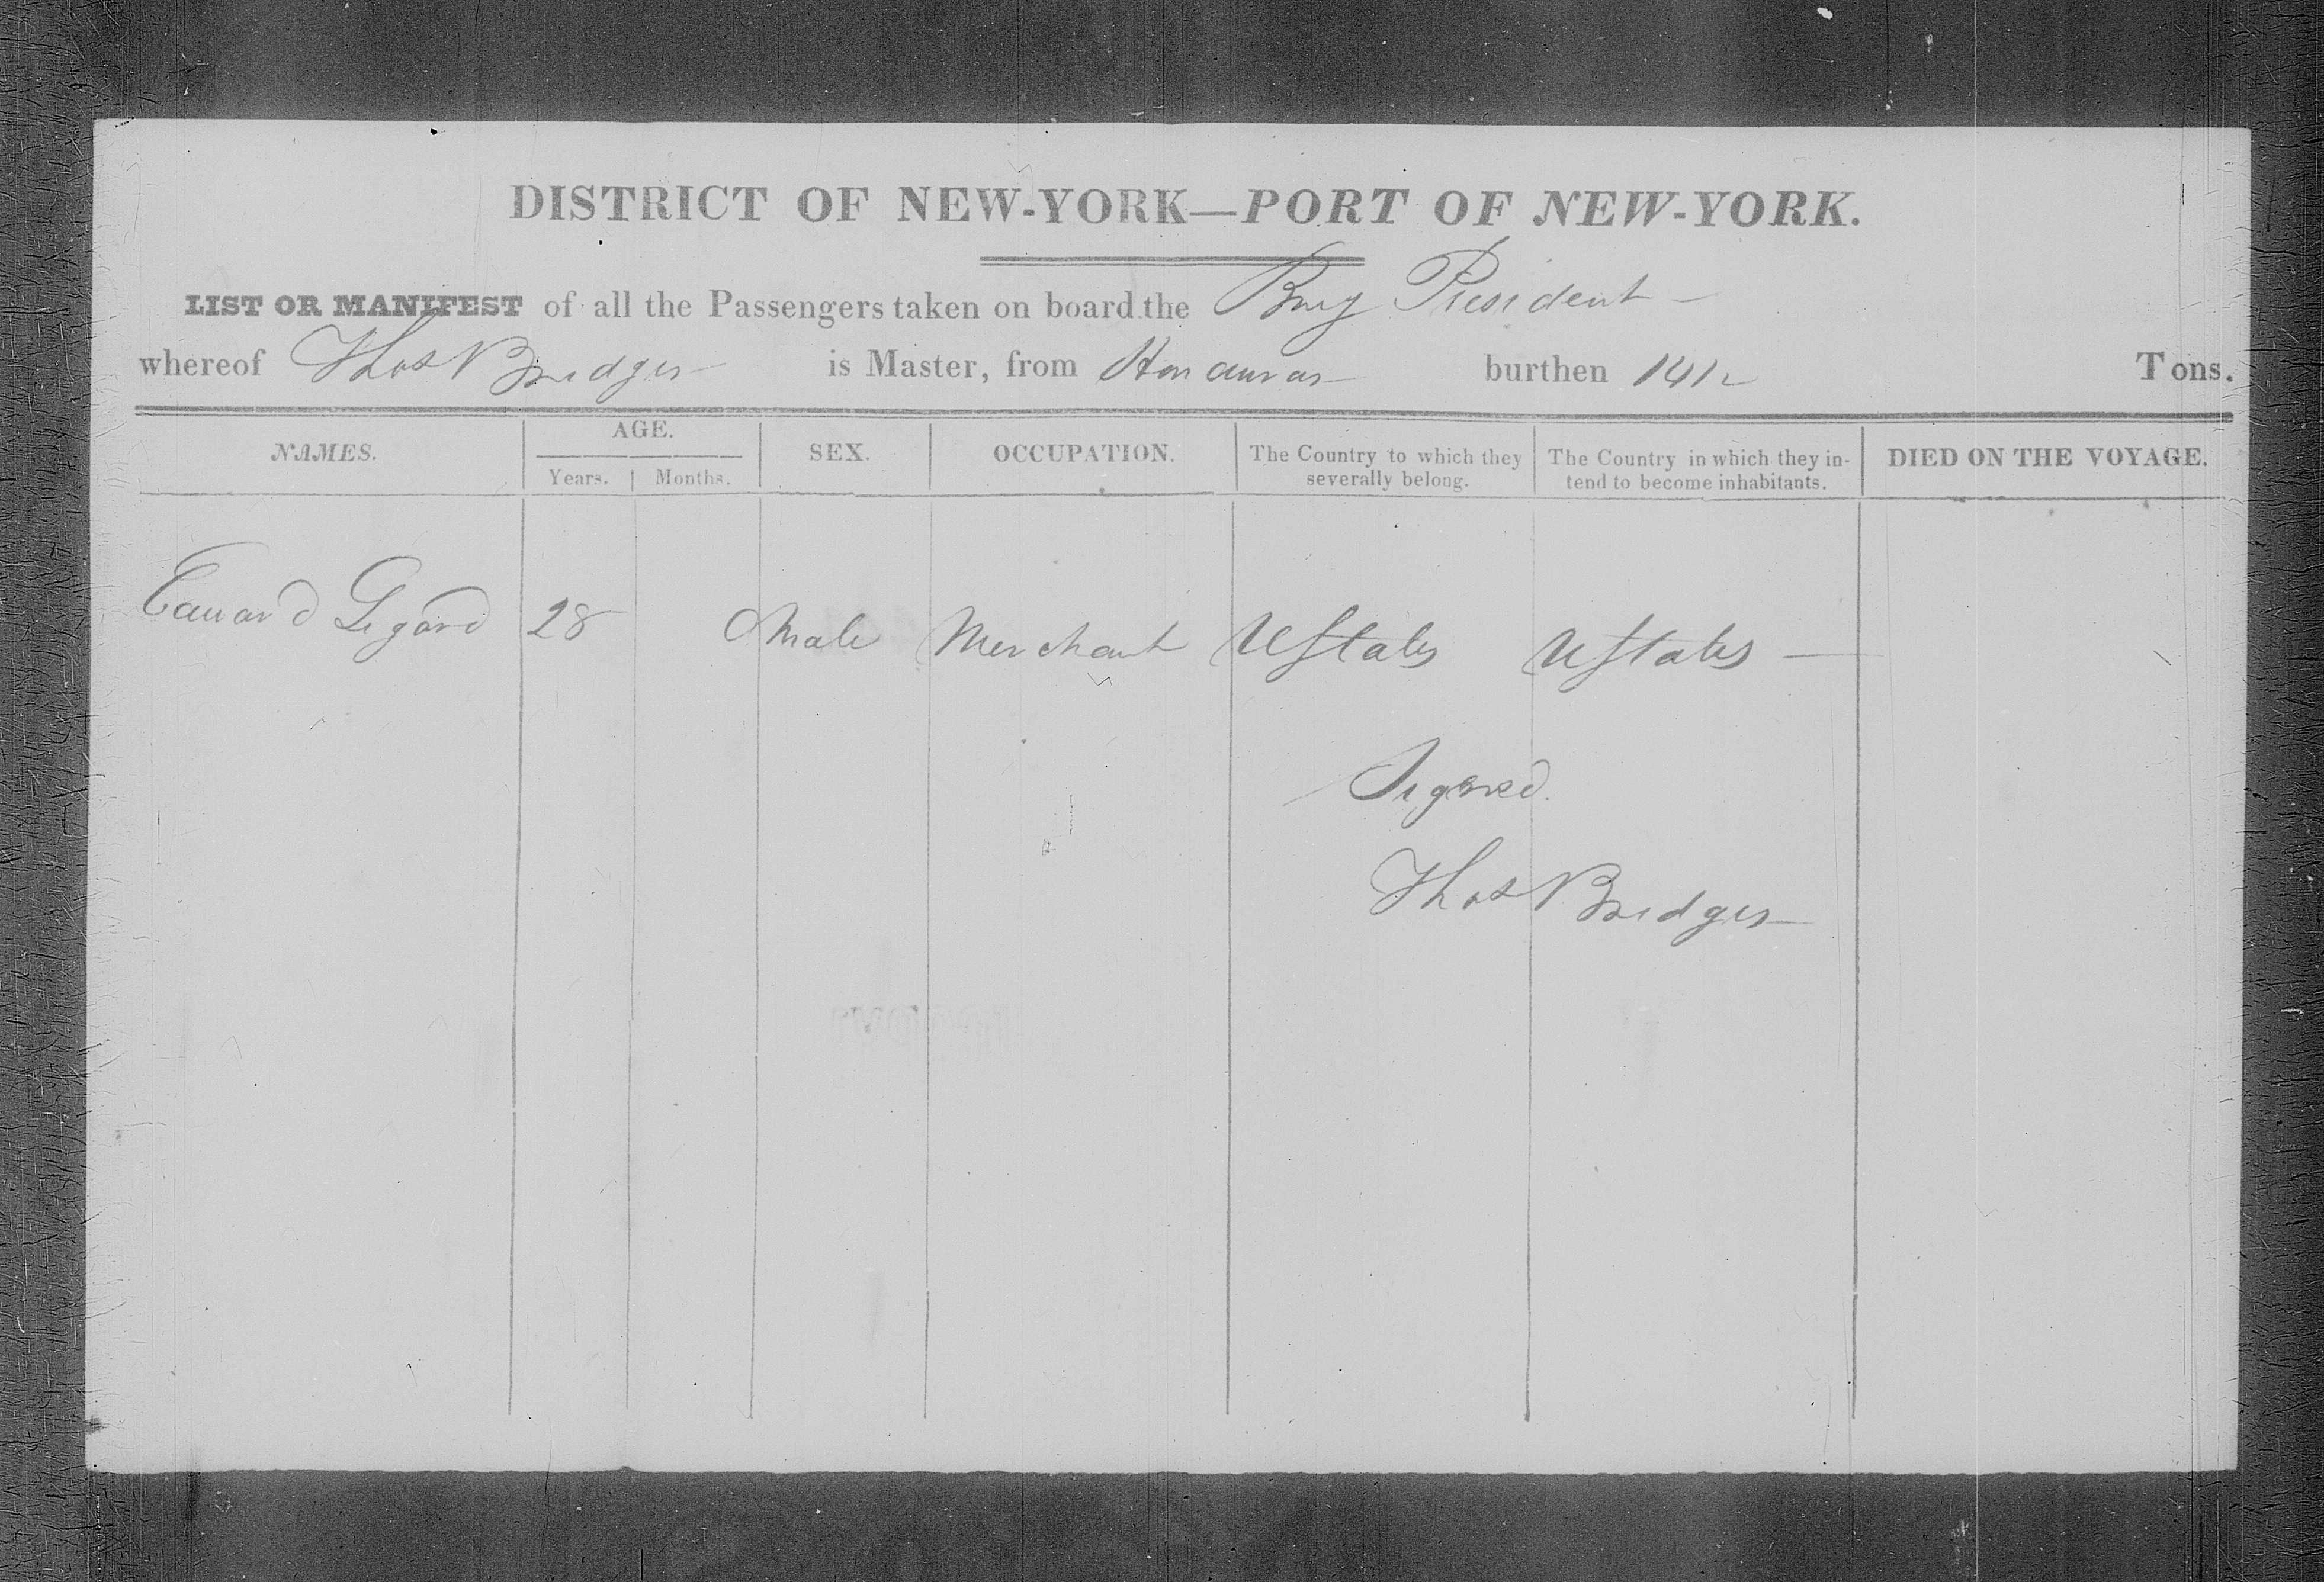 DISTRICT OF NEW-YORK—PORT OF NEW-YORK.
LIST OR MANIFEST of all the Passengers taken on board the Brig President
whereof Thos Bridges is Master, from Honduras burthen 141 Tons.
NAMES. AGE. SEX. OCCUPATION. The Country to which they severally belong. The Country in which they intend to become inhabitants. DIED ON THE VOYAGE.
Years. Months.
Edward Legard 28 Male Merchant UStates UStates —
Signed.
Thos Bridges